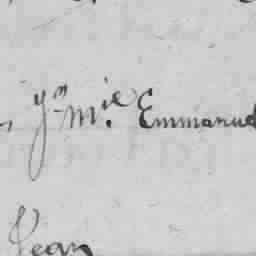 yⁿ mⁱᵉ Emmanuel
Jean